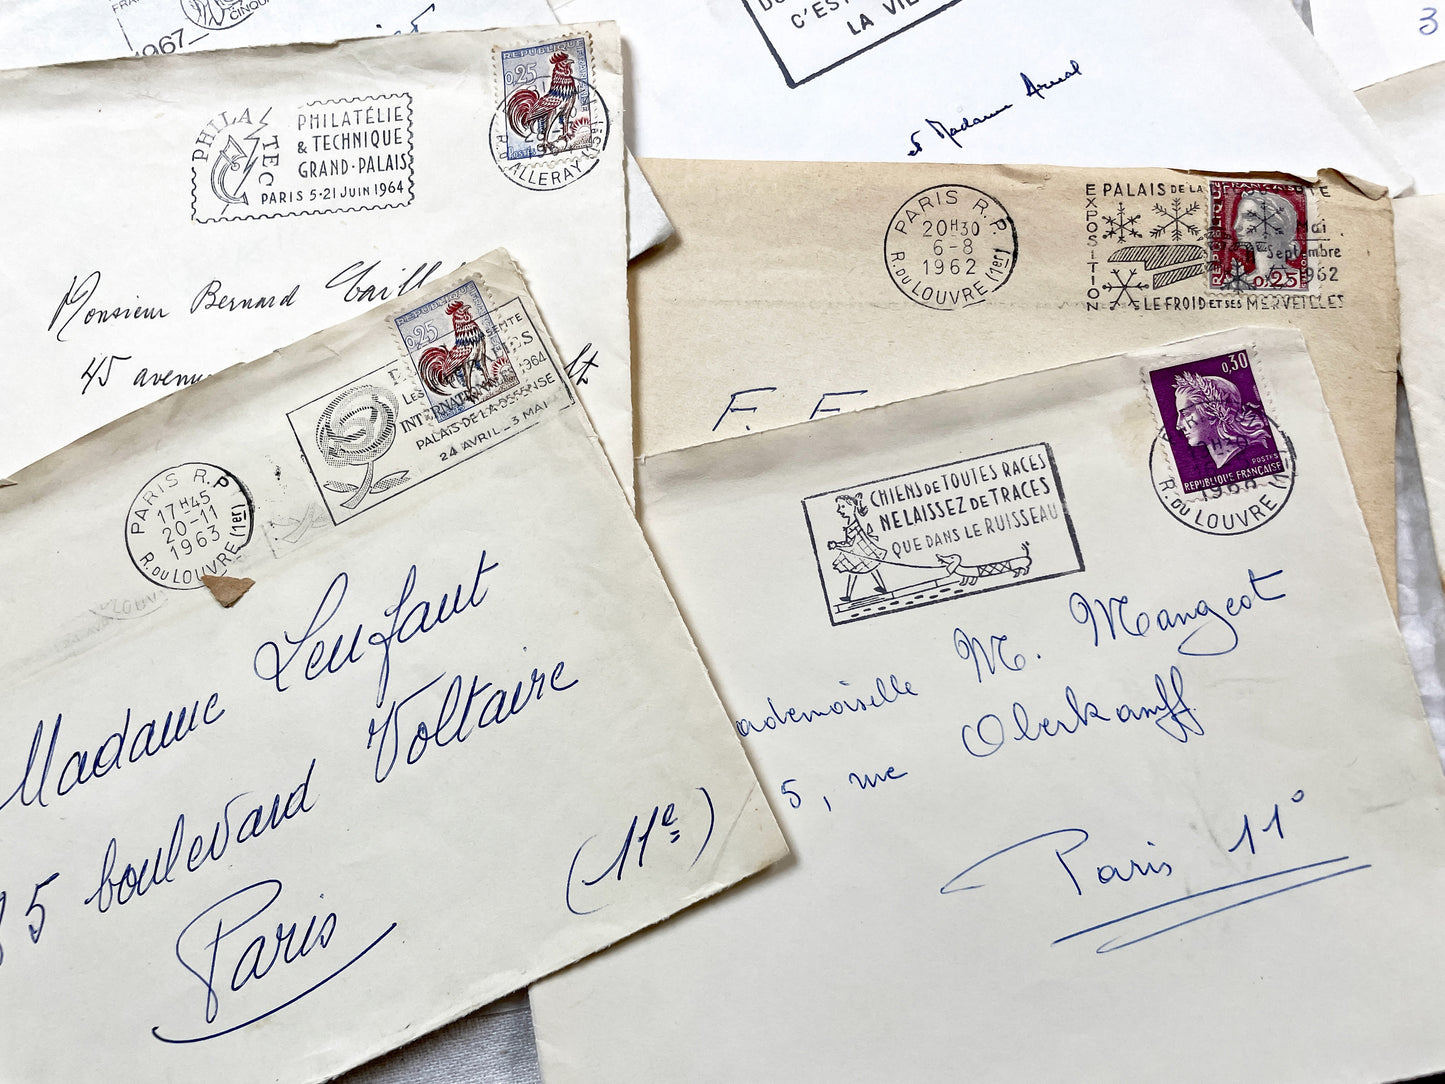 CINQU
1967
C'EST
LA VIL
3
et Madame Arnal
PHILATEC
PHILATÉLIE
& TECHNIQUE
GRAND-PALAIS
PARIS 5-21 JUIN 1964
REPUBLIQUE FRANÇAISE
0,25
POSTES
R. D'ALLERAY
Monsieur Bernard
45 avenue
PARIS R.P.
20H30
6-8
1962
R. DU LOUVRE (1er)
EXPOSITION
PALAIS DE LA
DÉCOUVERTE
Mai
Septembre
1962
LE FROID ET SES MERVEILLES
0,25
F. F
REPUBLIQUE
0,25
LES
INTERNATIONALES 1964
PALAIS-DE-LA-DÉFENSE
24 AVRIL_3 MAI
PARIS R.P.
17H45
20-11
1963
R. DU LOUVRE (1er)
Madame Leufaut
85 boulevard Voltaire
Paris (11e)
0,30
POSTES
REPUBLIQUE FRANÇAISE
R. DU LOUVRE
CHIENS DE TOUTES RACES
NE LAISSEZ DE TRACES
QUE DANS LE RUISSEAU
ademoiselle M. Mangeot
5, rue Oberkampff
Paris 11°